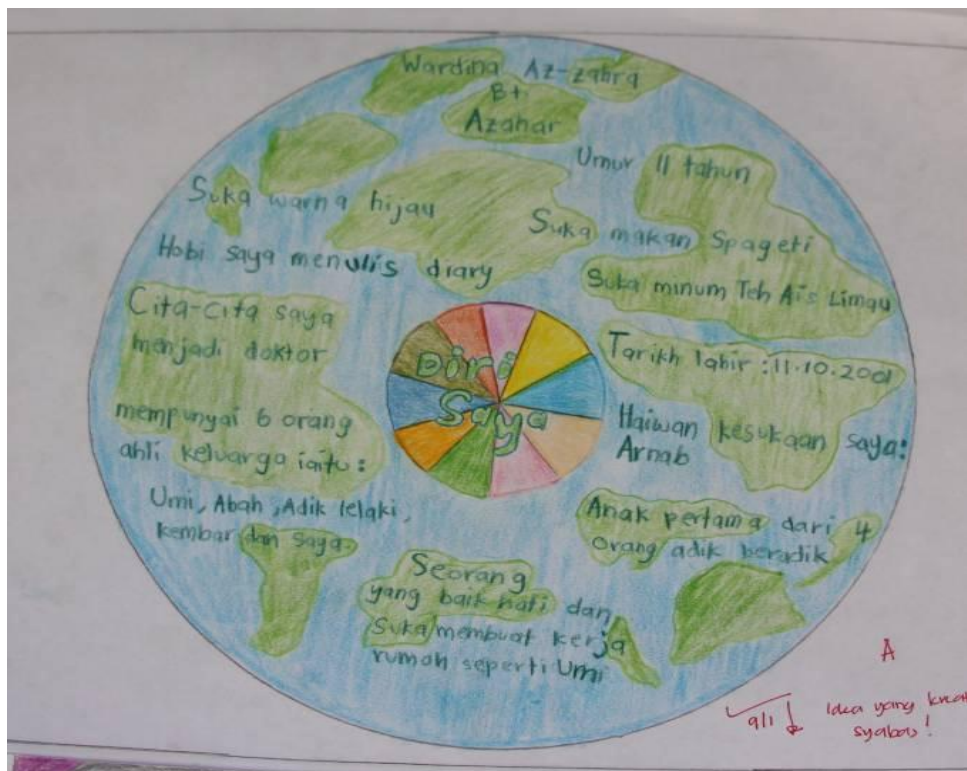 Wardina Az-zahra
Bt
Azahar
Umur 11 tahun
Suka warna hijau
Suka makan Spageti
Hobi saya menulis diary
Suka minum Teh Ais Limau
Cita-cita saya
menjadi doktor
Diri
Saya
Tarikh lahir : 11.10.2001
mempunyai 6 orang
ahli keluarga iaitu :
Haiwan kesukaan saya:
Arnab
Umi, Abah, Adik lelaki,
kembar dan saya.
Anak pertama dari 4
orang adik beradik
Seorang
yang baik hati dan
Suka membuat kerja
rumah seperti Umi
A
9/1
Idea yang
syabas!